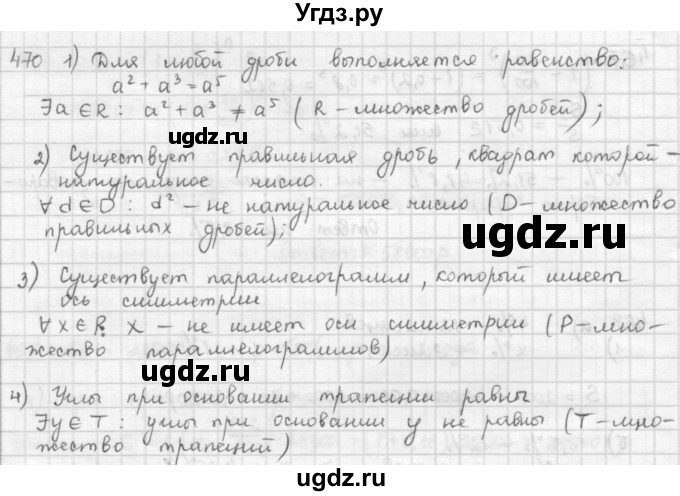 Угдз.ру
470 1) Для любой дроби выполняется равенство:
a² + a³ = a⁵
∃a ∈ R : a² + a³ ≠ a⁵ ( R – множество дробей);
2) Существует правильная дробь, квадрат которой -
натуральное число.
∀ d ∈ D : d² – не натуральное число (D – множество
правильных дробей);
3) Существует параллелограмм, который имеет
ось симметрии
∀ x ∈ P: x – не имеет оси симметрии (P – мно-
жество параллелограммов)
4) Углы при основании трапеции равны
∃y ∈ T : углы при основании y не равны (T – мно-
жество трапеций)
©ugdz.ru
©ugdz.ru
©ugdz.ru
ugdz.ru
ugdz.ru